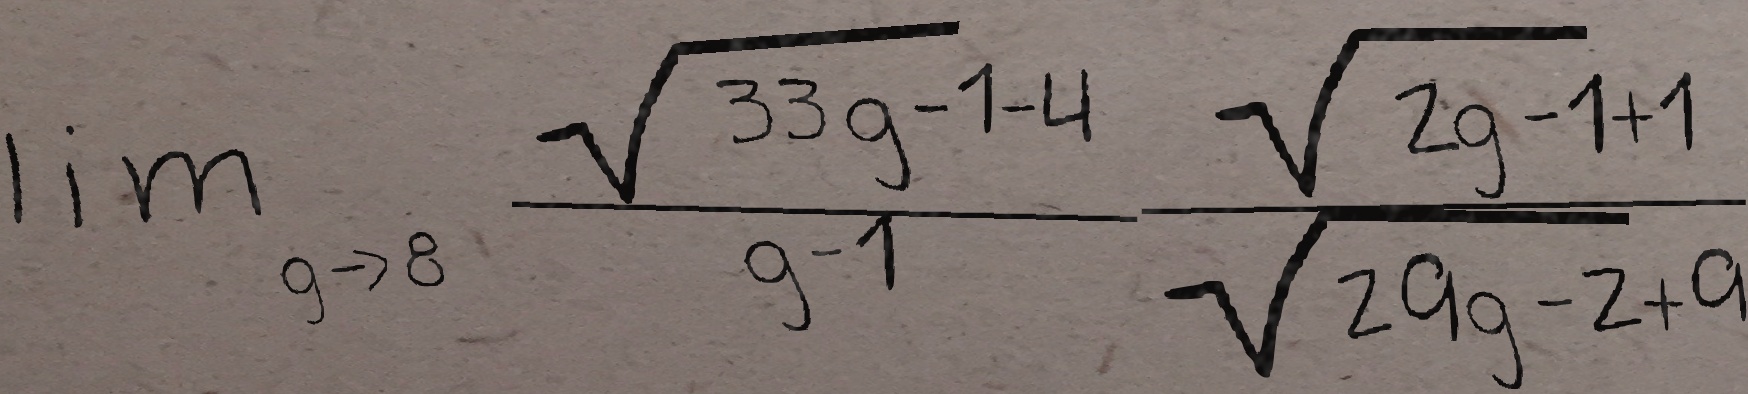 \lim_{g \to 8} \frac{\sqrt{33g-1-4}}{g-1} \frac{\sqrt{2g-1+1}}{\sqrt{29g-2+9}}